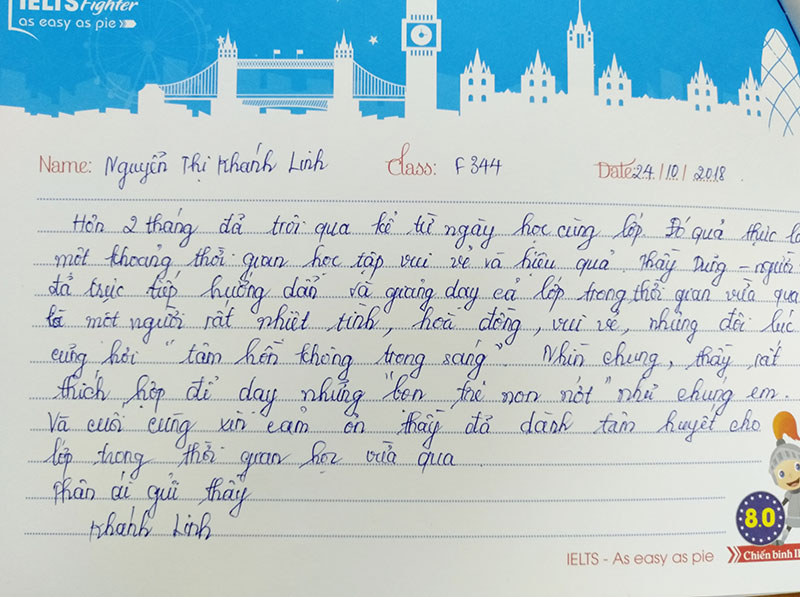 IELTS Fighter
as easy as pie
Name: Nguyễn Thị Khánh Linh Class: F344 Date: 24/10/2018
Hơn 2 tháng đã trôi qua kể từ ngày học cùng lớp. Đó quả thực là
một khoảng thời gian học tập vui vẻ và hiệu quả. Thầy Dũng - người
đã trực tiếp hướng dẫn và giảng dạy cả lớp trong thời gian vừa qua
là một người rất nhiệt tình, hoà đồng, vui vẻ, nhưng đôi lúc
cũng hơi "tâm hồn không trong sáng". Nhìn chung, thầy rất
thích hợp để dạy những "bọn trẻ non nớt" như chúng em.
Và cuối cùng xin cảm ơn thầy đã dành tâm huyết cho
lớp trong thời gian học vừa qua
Thân ái gửi thầy
Khánh Linh
8.0
IELTS - As easy as pie
Chiến binh